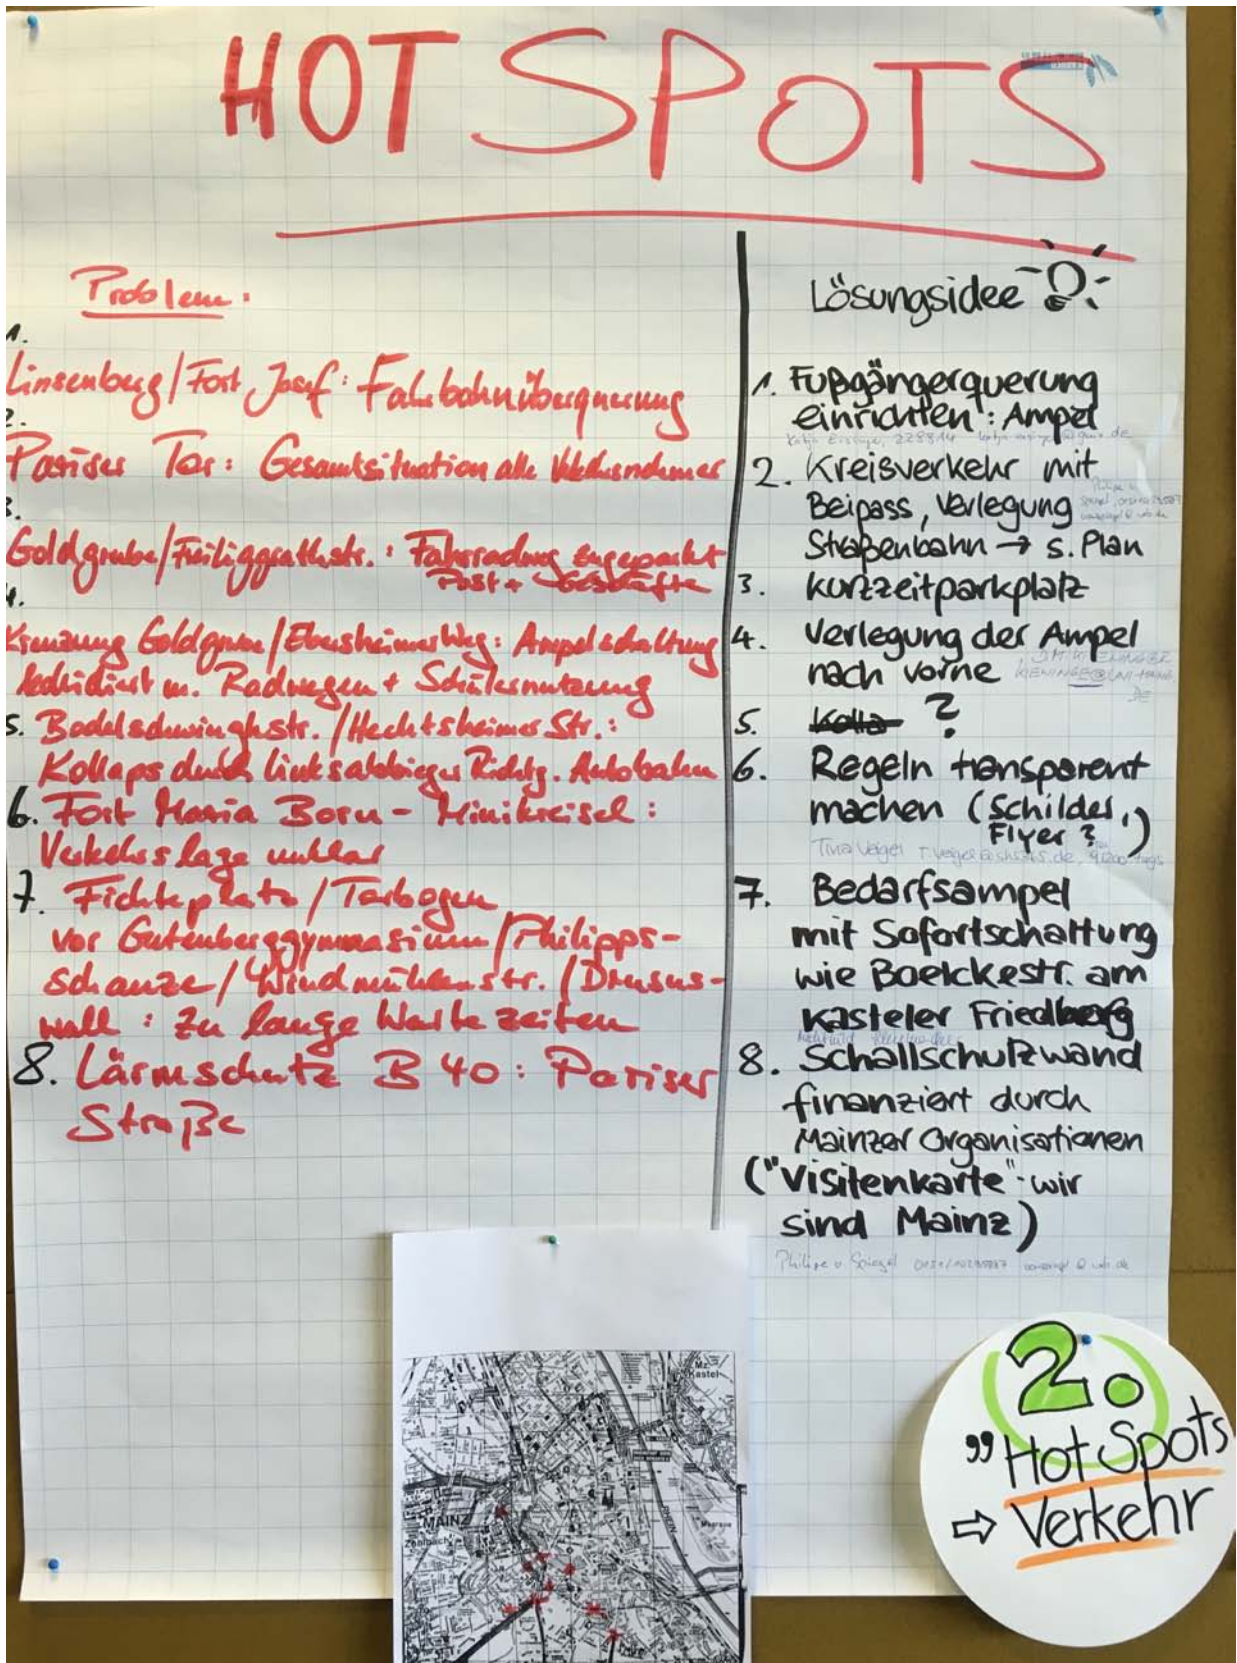 HOT SPOTS
Problem:
1.
Linsenberg/Fort Josef: Fahrbahnüberquerung
2.
Pariser Tor: Gesamtsituation alle
3.
Goldgrube/Freiliggrathstr.: zugeparkt
Post + Geschäfte
4.
Kreuzung Goldgrube/Ebersheimer Weg: Ampelschaltung
m. Radwegen + Schülernutzung
5. Bodelschwinghstr./Hechtsheimer Str.:
Kollaps durch Linksabbieger Richtg. Autobahn
6. Fort Maria Born - Minikreisel:
Verkehrslage unklar
7. Fichteplatz/Torbogen
vor Gutenberggymnasium/Philipps-
schanze/Windmühlenstr./Drusus-
wall: zu lange Wartezeiten
8. Lärmschutz B 40: Pariser
Straße
Lösungsidee
1. Fußgängerquerung
einrichten: Ampel
2. Kreisverkehr mit
Beipass, Verlegung
Straßenbahn → s. Plan
3. Kurzzeitparkplatz
4. Verlegung der Ampel
nach vorne
5. Kolla ?
6. Regeln transparent
machen (Schilder,
Flyer?)
7. Bedarfsampel
mit Sofortschaltung
wie Boelckestr. am
Kasteler Friedberg
8. Schallschutzwand
finanziert durch
Mainzer Organisationen
("Visitenkarte" - wir
sind Mainz)
Philipp v Spiegel
Mz.
Kastel
MAINZ
Zahlbach
RHEIN
2.
"Hot Spots
⇨ Verkehr